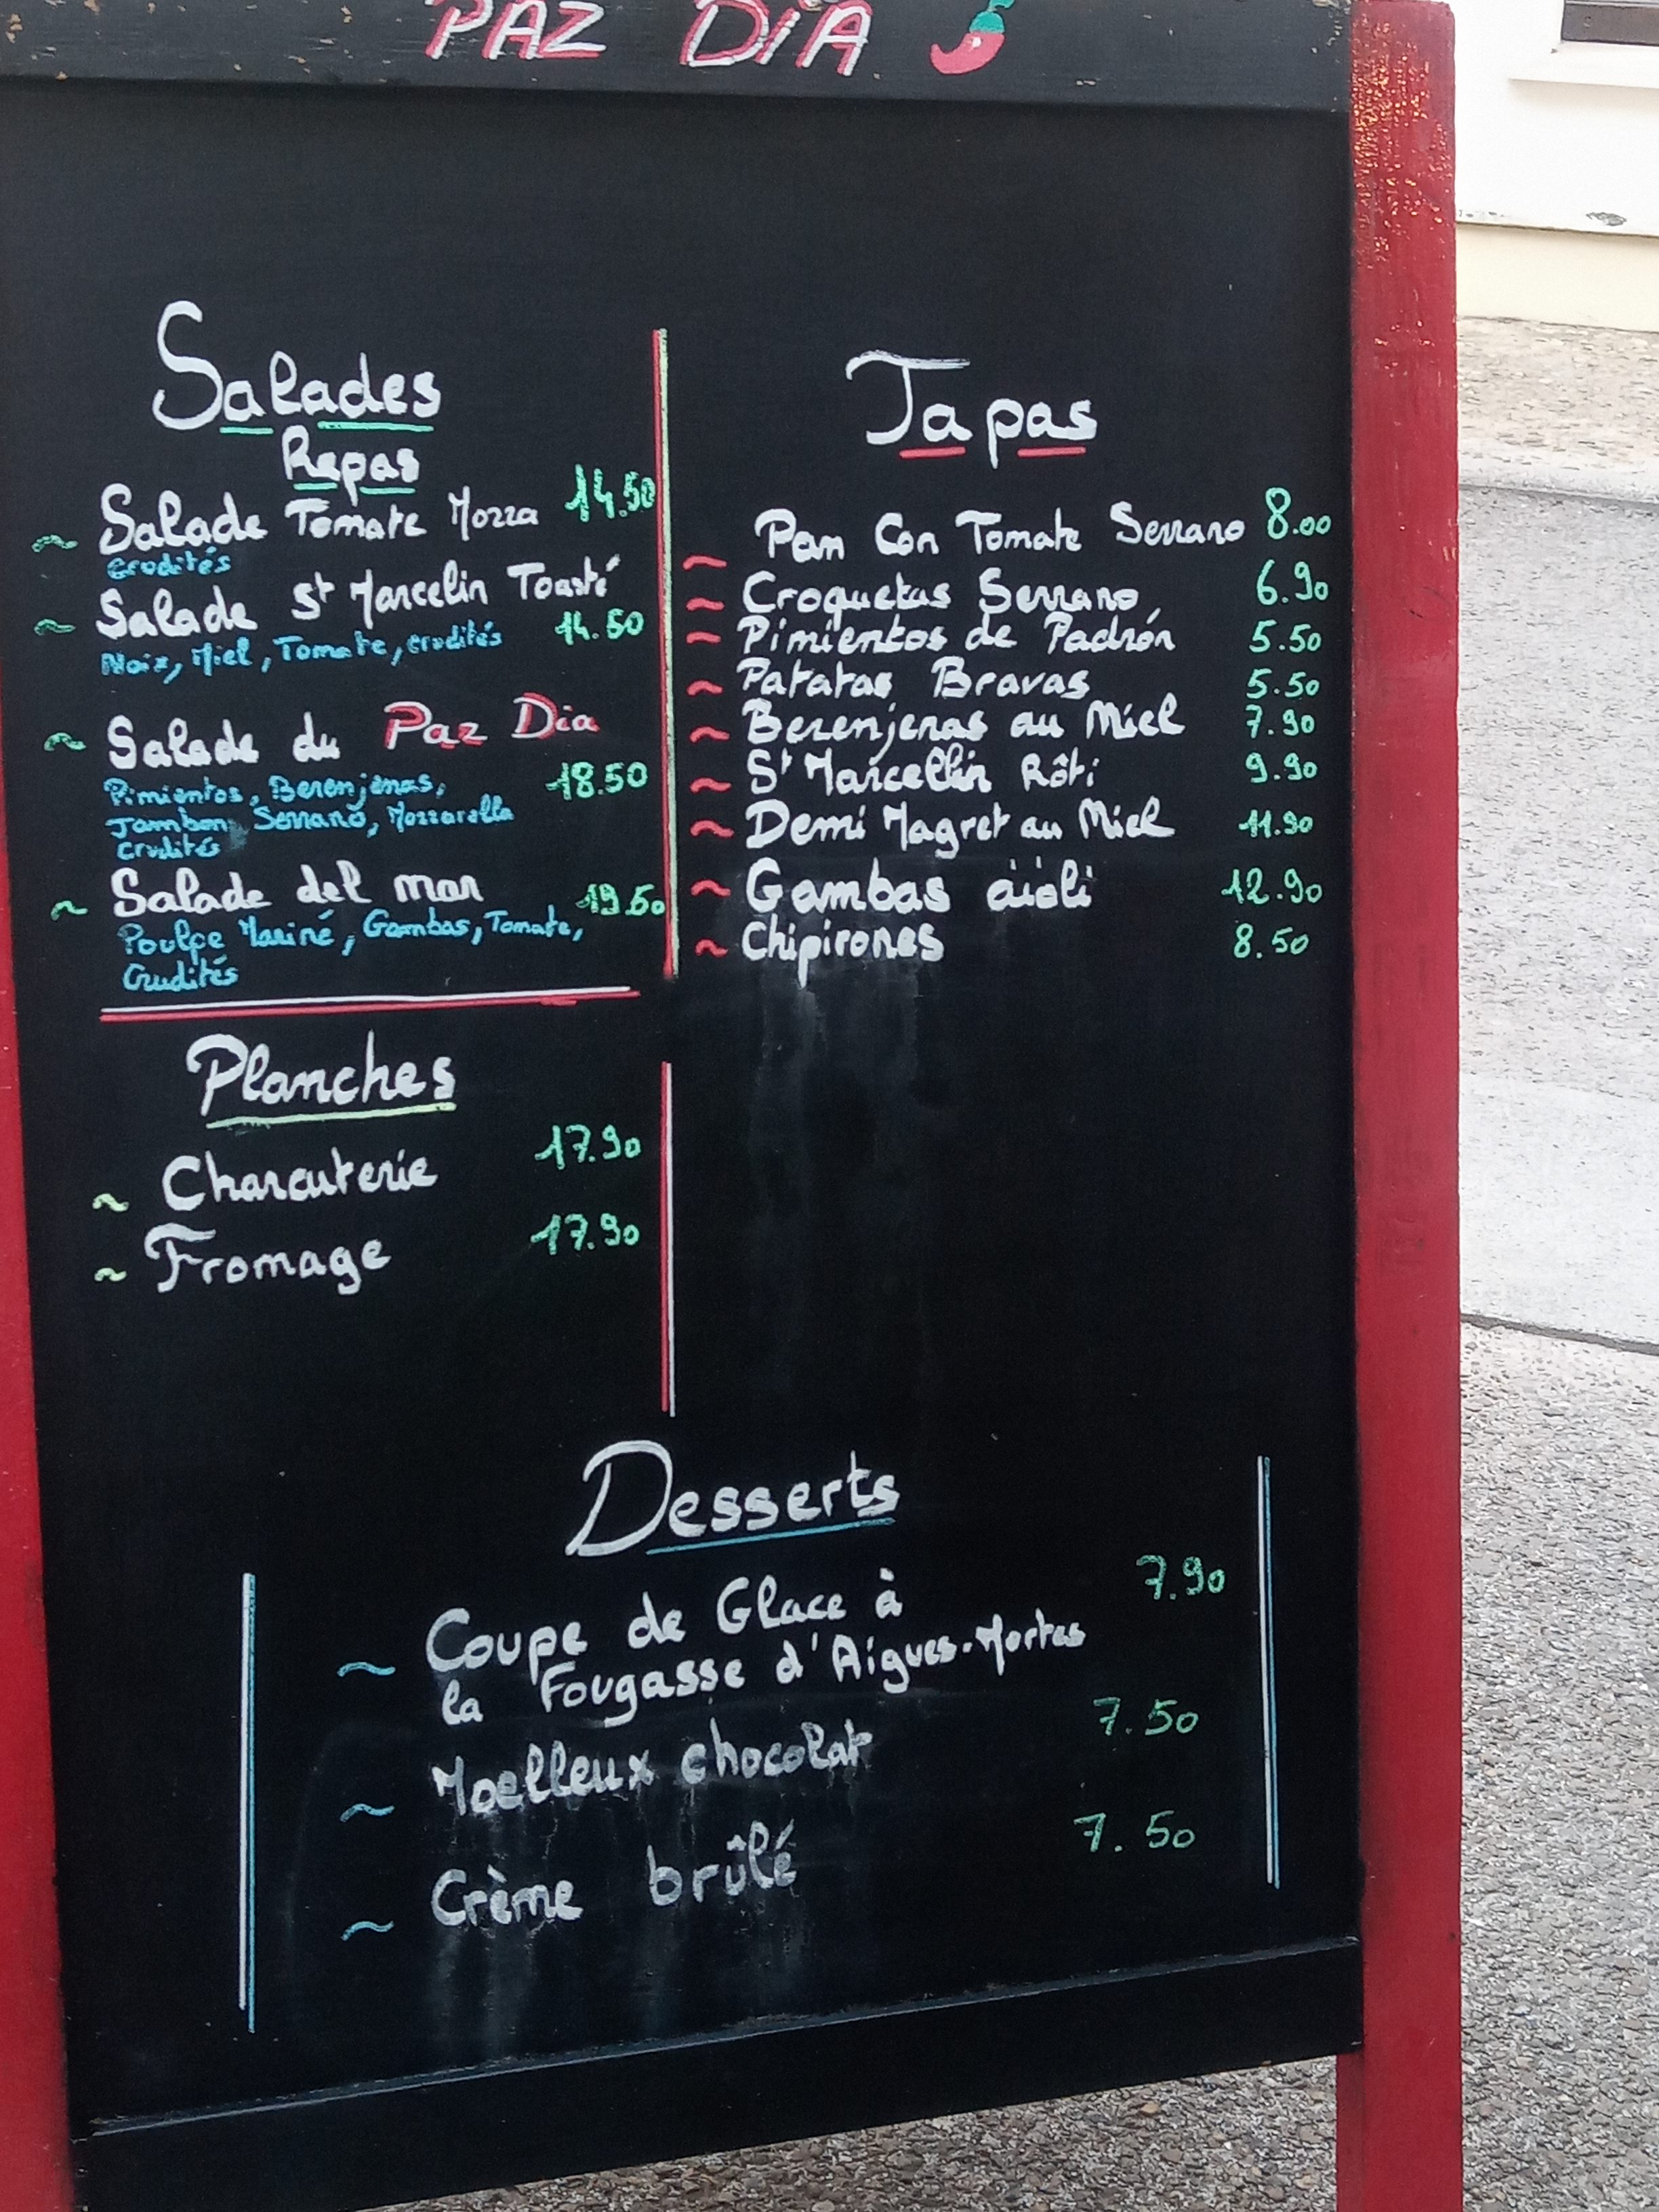 PAZ DiA
Salades
Repas
~ Salade Tomate Mozza 14.50
crudités
~ Salade St Marcelin Toasté
Noix, Miel, Tomate, crudités 14.50
~ Salade du Paz Dia
Pimientos, Berenjenas, 18.50
Jambon Serrano, Mozzarella
crudités
~ Salade del mar 19.50
Poulpe Mariné, Gambas, Tomate,
Crudités
Planches
~ Charcuterie 17.90
~ Fromage 17.90
Tapas
~ Pan Con Tomate Serrano 8.00
~ Croquetas Serrano, 6.90
~ Pimientos de Padrón 5.50
~ Patatas Bravas 5.50
~ Berenjenas au Miel 7.90
~ St Marcellin Rôti 9.90
~ Demi Magret au Miel 11.90
~ Gambas aïoli 12.90
~ Chipirones 8.50
Desserts
~ Coupe de Glace à 7.90
la Fougasse d'Aigues-Mortes
~ Moelleux chocolat 7.50
~ Crème brûlé 7.50